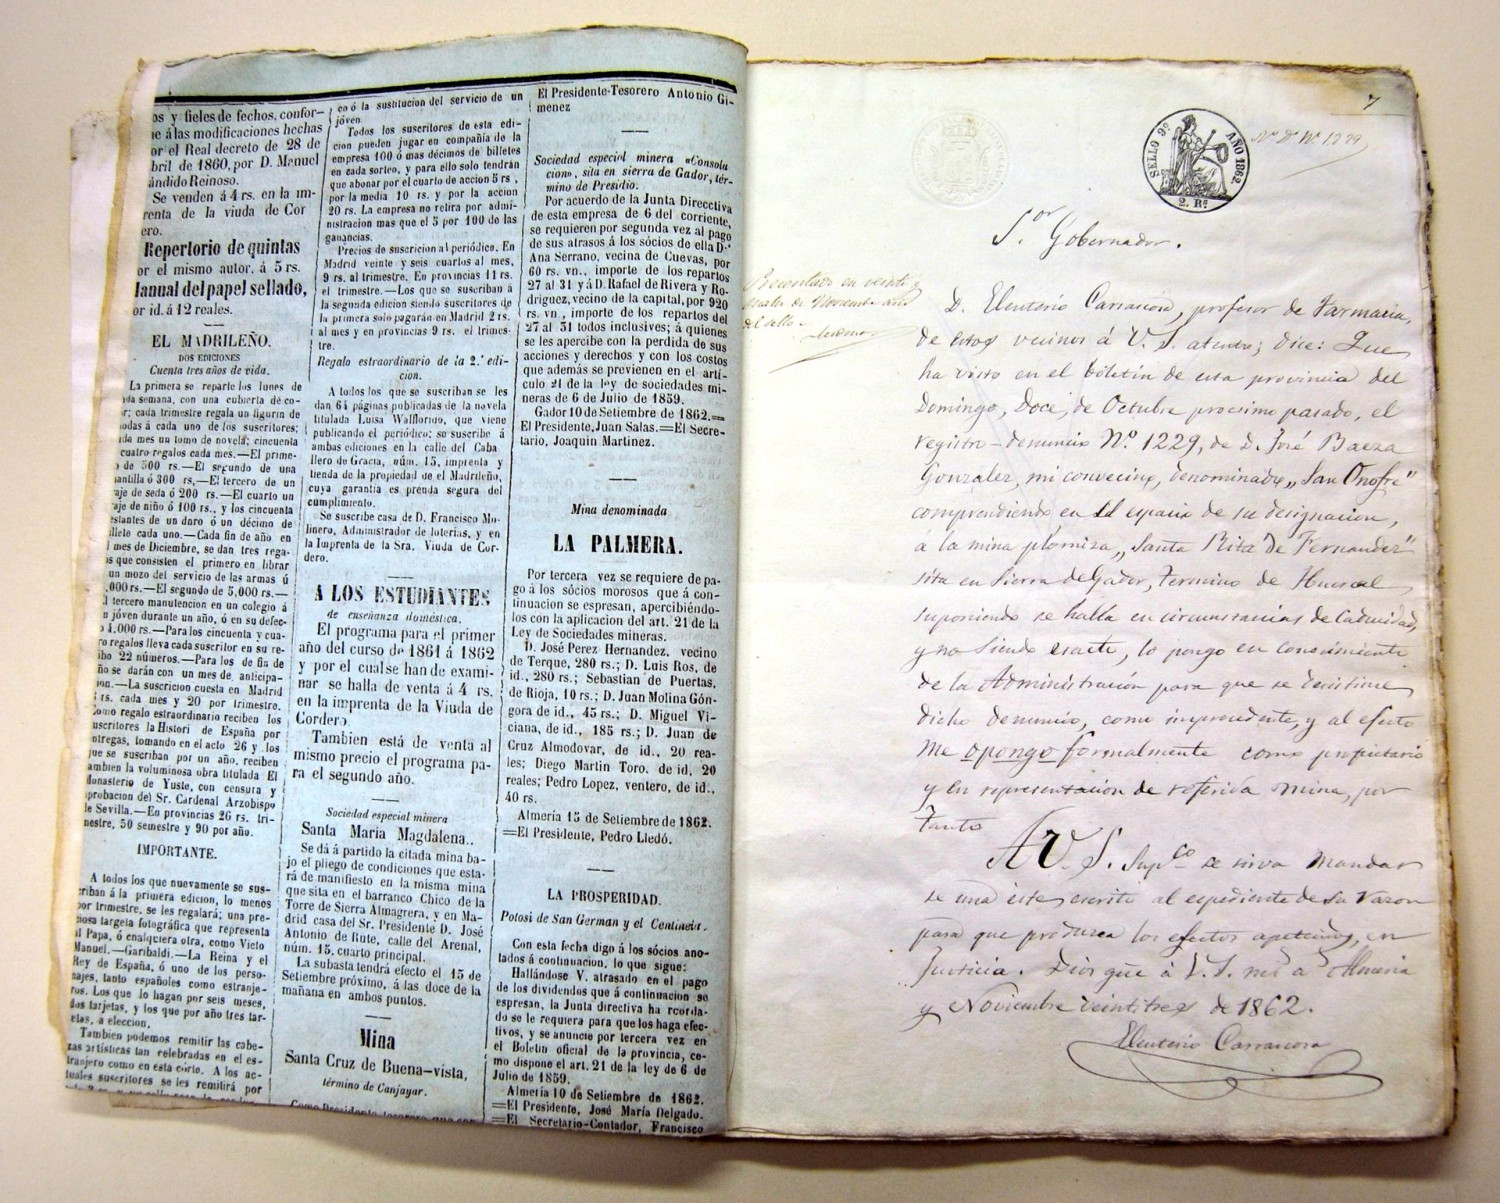 os y fieles de fechos, confor-
e á las modificaciones hechas
or el Real decreto de 28 de
bril de 1860, por D. Manuel
ándido Reinoso.
Se venden á 4 rs. en la im-
renta de la viuda de Cor
ero.
Repertorio de quintas
or el mismo autor, á 5 rs.
lanual del papel sellado,
or id. á 12 reales.
EL MADRILEÑO.
DOS EDICIONES
Cuenta tres años de vida.
La primera se reparte los lunes de
da semana, con una cubierta de co-
r; cada trimestre regala un figurin de
odas á cada uno de los suscritores;
da mes un tomo de novela; cincuenta
cuatro regalos cada mes.—El prime-
de 500 rs.—El segundo de una
antilla ó 300 rs,—El tercero de un
aje de seda ó 200 rs.—El cuarto un
aje de niño ó 100 rs., y los cincuenta
estantes de un duro ó un décimo de
llete cada uno.—Cada fin de año en
mes de Diciembre, se dan tres rega-
s que consisten el primero en librar
un mozo del servicio de las armas ú
,000 rs.—El segundo de 5,000 rs.—
l tercero manutencion en un colegio á
n jóven durante un año, ó en su defec-
o 4,000 rs.—Para los cincuenta y cua-
ro regalos lleva cada suscritor en su re-
ibo 22 números.—Para los de fin de
ño se darán con un mes de anticipa-
on.—La suscricion cuesta en Madrid
rs. cada mes y 20 por trimestre.
omo regalo estraordinario reciben los
uscritores la Histori de España por
ntregas, tomando en el acto 26 y los
que se suscriban por un año, reciben
ambien la voluminosa obra titulada El
onasterio de Yuste, con censura y
probacion del Sr. Cardenal Arzobispo
e Sevilla.—En provincias 26 rs. tri-
mestre, 50 semestre y 90 por año.
IMPORTANTE.
A todos los que nuevamente se sus-
riban á la primera edicion, lo menos
por trimestre, se les regalará; una pre-
iosa targeta fotográfica que representa
l Papa, ó cualquiera otra, como Victo
Manuel.—Garibaldi.—La Reina y el
Rey de España, ó uno de los perso-
najes, tanto españoles como estranje-
ros. Los que lo hagan por seis meses,
dos tarjetas, y los que por año tres tar-
etas, a eleccion.
Tambien podemos remitir las cabe-
zas artísticas tan celebradas en el es-
tranjero como en esta córte. A los ac-
tuales suscritores se les remitirá por
co ó la sustitucion del servicio de un
jóven.
Todos los suscritores de esta edi-
cion pueden jugar en compañía de la
empresa 100 ó mas décimos de billetes
en cada sorteo, y para ello solo tendrán
que abonar por el cuarto de accion 5 rs,
por la media 10 rs. y por la accion
20 rs. La empresa no retira por admi-
nistracion mas que el 5 por 100 de las
ganancias.
Precios de suscricion al periódico. En
Madrid veinte y seis cuartos al mes,
9 rs. al trimestre. En provincias 11 rs.
el trimestre.—Los que se suscriban á
la segunda edicion siendo suscritores de
la primera solo pagarán en Madrid 2 rs.
al mes y en provincias 9 rs. el trimes-
tre.
Regalo estraordinario de la 2.ª edi-
cion.
A todos los que suscriban se les
dan 64 páginas publicadas de la novela
titulada Luisa Wallflorino, que viene
publicando el periódico: se suscribe á
ambas ediciones en la calle del Caba
llero de Gracia, núm. 15, imprenta y
tienda de la propiedad de el Madrileño,
cuya garantía es prenda segura del
cumplimiento.
Se suscribe casa de D. Francisco Mo-
linero, Administrador de loterias, y en
la Imprenta de la Sra. Viuda de Cor-
dero.
A LOS ESTUDIANTES
de enseñanza doméstica.
El programa para el primer
año del curso de 1861 á 1862
y por el cual se han de exami-
nar se halla de venta á 4 rs.
en la imprenta de la Viuda de
Cordero.
Tambien está de venta al
mismo precio el programa pa-
ra el segundo año.
Sociedad especial minera
Santa María Magdalena..
Se dá á partido la citada mina ba-
jo el pliego de condiciones que esta-
rá de manifiesto en la misma mina
que sita en el barranco Chico de la
Torre de Sierra Almagrera, y en Ma-
drid casa del Sr. Presidente D. José
Antonio de Rute, calle del Arenal,
núm. 15, cuarto principal.
La subasta tendrá efecto el 15 de
Setiembre próximo, á las doce de la
mañana en ambos puntos.
Mina
Santa Cruz de Buena-vista,
término de Canjayar.
El Presidente-Tesorero Antonio Gi-
menez
Sociedad especial minera «Consola
cion», sita en sierra de Gador, tér-
mino de Presidio.
Por acuerdo de la Junta Direcctiva
de esta empresa de 6 del corriente,
se requieren por segunda vez al pago
de sus atrasos á los sócios de ella D.ª
Ana Serrano, vecina de Cuevas, por
60 rs. vn., importe de los repartos
27 al 31 y á D. Rafael de Rivera y Ro-
driguez, vecino de la capital, por 920
rs. vn, importe de los repartos del
27 al 31 todos inclusives; á quienes
se les apercibe con la perdida de sus
acciones y derechos y con los costos
que además se previenen en el artí-
culo 21 de la ley de sociedades mi-
neras de 6 de Julio de 1859.
Gador 10 de Setiembre de 1862.=
El Presidente, Juan Salas.=El Secre-
tario, Joaquin Martinez.
Mina denominada
LA PALMERA.
Por tercera vez se requiere de pa-
go á los sócios morosos que á con-
tinuacion se espresan, apercibiéndo-
los con la aplicacion del art. 21 de la
Ley de Sociedades mineras.
D. José Perez Hernandez, vecino
de Terque, 280 rs.; D. Luis Ros, de
id., 280 rs.; Sebastian de Puertas,
de Rioja, 10 rs.; D. Juan Molina Gón-
gora de id., 45 rs.; D. Miguel Vi-
ciana, de id., 185 rs.; D. Juan de
Cruz Almodovar, de id., 20 rea-
les; Diego Martin Toro, de id. 20
reales; Pedro Lopez, ventero, de id.,
40 rs.
Almería 15 de Setiembre de 1862.
=El Presidente, Pedro Lledó.
LA PROSPERIDAD.
Potosí de San German y el Centinela.
Con esta fecha digo á los sócios ano-
tados á continuacion, lo que sigue:
Hallándose V. atrasado en el pago
de los dividendos que á continuacion se
espresan, la Junta directiva ha acorda-
do se le requiera para que los haga efec-
tivos, y se anuncie por tercera vez en
el Boletin oficial de la provincia, co-
mo dispone el art. 21 de la ley de 6 de
Julio de 1859.
Almería 10 de Setiembre de 1862.
=El Presidente, José María Delgado.
=El Secretario-Contador, Francisco
7
SELLO 9º AÑO 1862.
2. Rs
Nº 1229
Sor Gobernador.
Presentado en veinte y
cuatro de Noviembre año
del sello
D. Eleuterio Carrascosa, profesor de Farmacia,
de estos vecinos á V. S. atento; dice: Que
ha visto en el boletin de esta provincia del
Domingo, Doce, de Octubre procsimo pasado, el
registro-denuncio Nº 1229, de D. José Baeza
Gonzalez, mi convecino, denominado „San Onofre"
comprendiendo en el espacio de su designacion,
á la mina plomiza „Santa Rita de Fernandez"
sita en Sierra de Gador, termino de Huercal,
suponiendo se halla en circunstancias de Caducidad,
y no siendo esacto, lo pongo en conocimiento
de la Administración para que se desestime
dicho denuncio, como improcedente, y al efecto
me opongo formalmente como propietario
y en representación de referida mina, por
Tanto
A V. S. Supco se sirva mandar
se una este escrito al espediente de su razon
para que produzca los efectos apetecidos, en
Justicia. Dios gue á V. S. ms as Almeria
y Noviembre veintitres de 1862.
Eleuterio Carrascosa